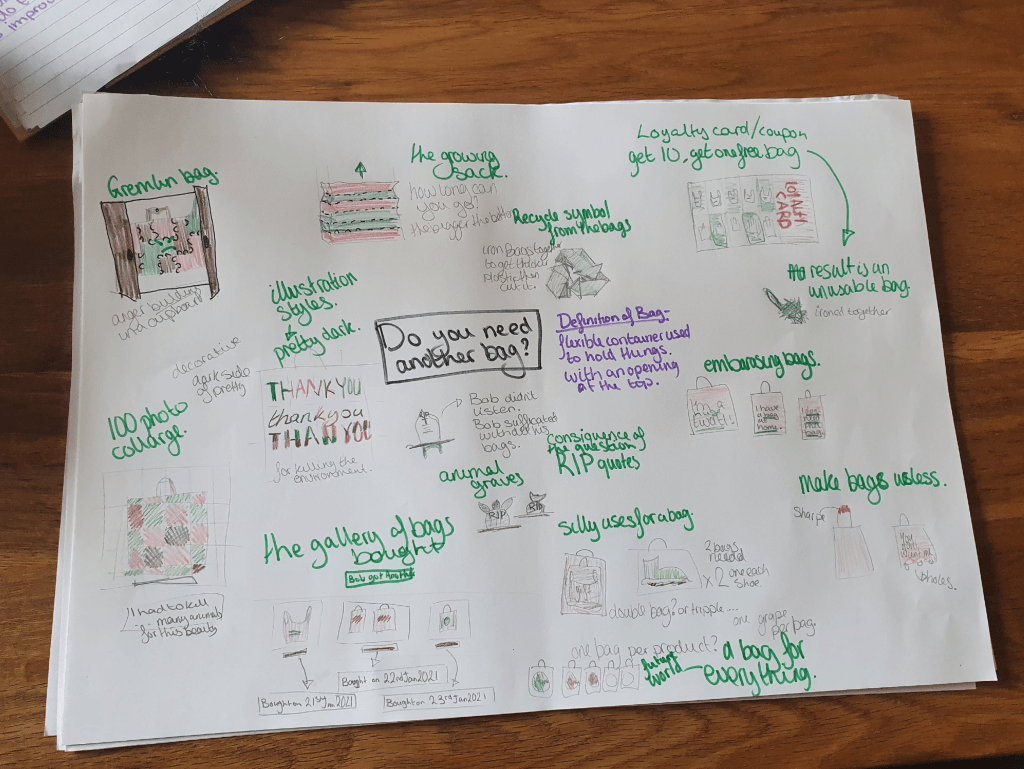 do
improv
Gremlin bag.
anger building
in a cupboard
the growing
sack.
how long can
you go?
the bigger the better
Loyalty card/coupon
get 10, get one free bag
LOYALTY
CARD
result is an
unusable bag.
ironed together
Recycle symbol
from the bags
iron Bags together
to get thicker
plastic then
cut it.
illustration
styles.
pretty dark.
decorative
dark side
of pretty
THANK YOU
thank you
THANK YOU
for killing the
environment.
Do you need
another bag?
Definition of Bag-
flexible container used
to hold things.
with an opening
at the top.
Bob didn't
listen.
Bob sufficated
with all his
bags.
consiquence of
the question
RIP quotes
animal
graves
RIP
RIP
embarrosing bags.
I'm a
twat!
I have
a bag at
home.
100 photo
collarge.
I had to kill
many animals
for this beauty
the gallery of bags
bought
Bob got Another
Bought on 21st Jan 2021
Bought on 22nd Jan 2021
Bought on 23rd Jan 2021
silly uses for a bag.
2 bags
needed
x2 one each
shoe.
double bag? or tripple ....
one grape
per bag.
one bag per product?
future
world
a bag for
everything.
make bags usless.
Sharpe
holes.